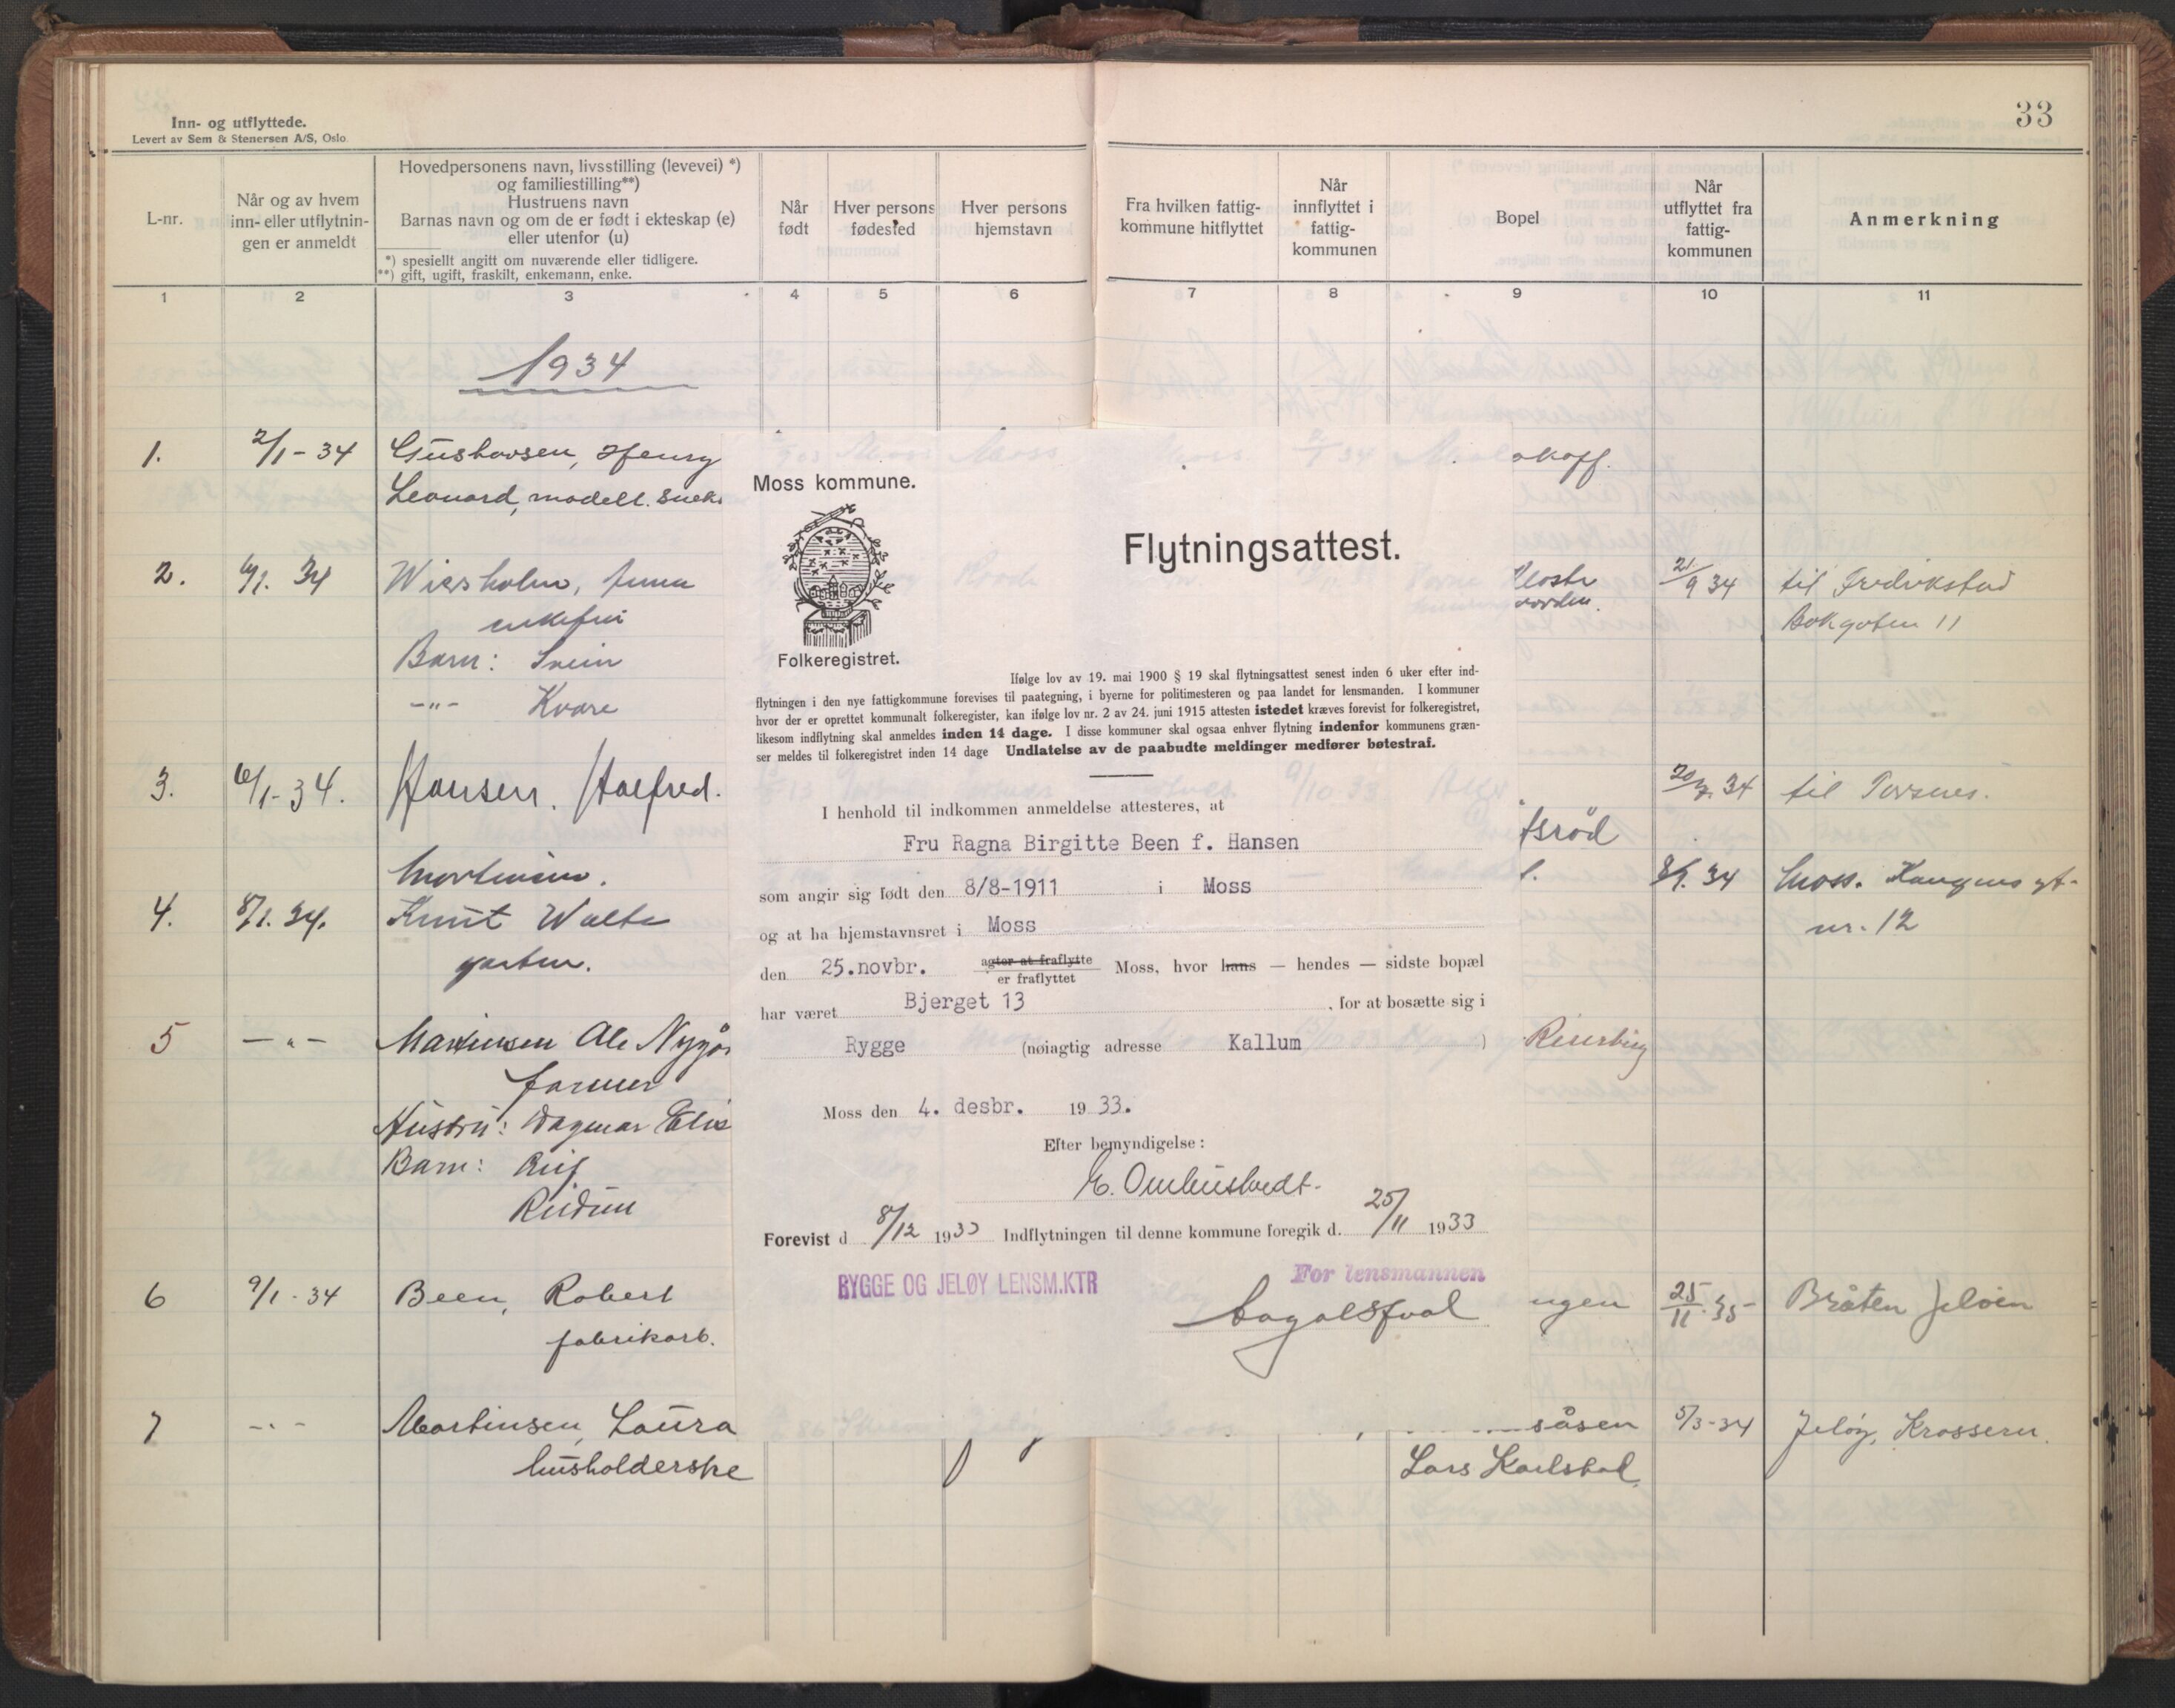 Inn- og utflyttede.
Levert av Sem & Stenersen A/S, Oslo.
33
L-nr.
Når og av hvem
inn- eller utflytnin-
gen er anmeldt
Hovedpersonens navn, livsstilling (levevei) *)
og familiestilling**)
Hustruens navn
Barnas navn og om de er født i ekteskap (e)
eller utenfor (u)
*) spesiellt angitt om nuværende eller tidligere.
**) gift, ugift, fraskilt, enkemann, enke.
Når
født
Hver persons
fødested
Hver persons
hjemstavn
Fra hvilken fattig-
kommune hitflyttet
Når
innflyttet i
fattig-
kommunen
Bopel
Når
utflyttet fra
fattig-
kommunen
Anmerkning
1 2 3 4 5 6 7 8 9 10 11
1934
1. 2/1-34 Gustavsen, Henry
Leonard, modell. snek.
2. 34 Wiersholm,
enkefru
Barn: Svein
-"- Kvare
21/9 34 til Fredrikstad
11
3. 6/1-34. Hansen, Halfred.
34 til Torsnes.
4. 8/1. 34. Knut Walte
8/1. 34 Moss. Kongens gt.
nr. 12
5 -"- Martinsen Ole
farmer
Hustru: Dagmar
Barn:
Reidun
6 9/1-34 Been, Robert
fabrikarb.
ugen 25/11-35 Bråten Jeløen
7 -"- Martinsen, Laura
husholderske
såsen 5/3-34 Jeløy, Krossern.
Lars Karlstad
Moss kommune.
Folkeregistret.
Flytningsattest.
Ifølge lov av 19. mai 1900 § 19 skal flytningsattest senest inden 6 uker efter ind-
flytningen i den nye fattigkommune forevises til paategning, i byerne for politimesteren og paa landet for lensmanden. I kommuner
hvor der er oprettet kommunalt folkeregister, kan ifølge lov nr. 2 av 24. juni 1915 attesten istedet kræves forevist for folkeregistret,
likesom indflytning skal anmeldes inden 14 dage. I disse kommuner skal ogsaa enhver flytning indenfor kommunens græn-
ser meldes til folkeregistret inden 14 dage Undlatelse av de paabudte meldinger medfører bøtestraf.
I henhold til indkommen anmeldelse attesteres, at
Fru Ragna Birgitte Been f. Hansen
som angir sig født den 8/8-1911 i Moss
og at ha hjemstavnsret i Moss
den 25.novbr. agter at fraflytte
er fraflyttet Moss, hvor hans — hendes — sidste bopæl
har været Bjerget 13, for at bosætte sig i
Rygge (nøiagtig adresse Kallum )
Moss den 4. desbr. 1933.
Efter bemyndigelse:
Forevist d 8/12 1933 Indflytningen til denne kommune foregik d. 25/11 1933
RYGGE OG JELØY LENSM.KTR
For lensmannen